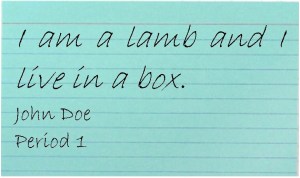 I am a lamb and I
live in a box.
John Doe
Period 1